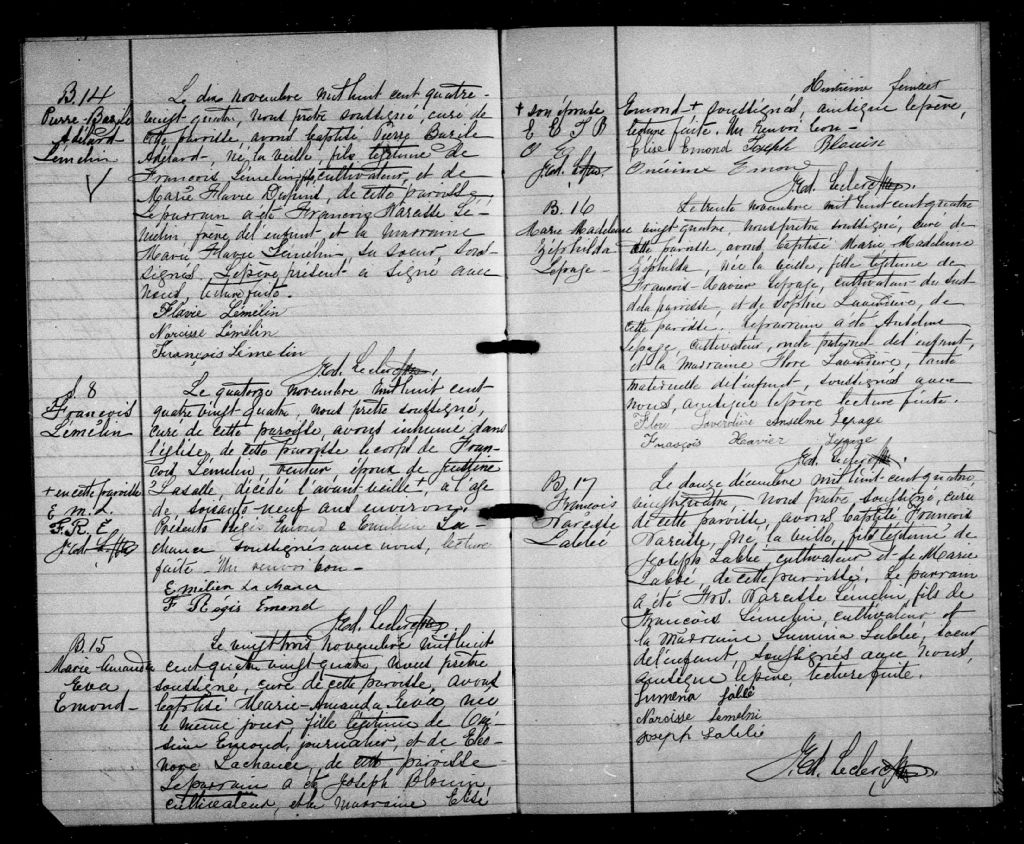 B.14
Pierre-Bazile
Adélard
Lémelin
Le dix novembre mil huit cent quatre-
vingt-quatre, nous prêtre soussigné, curé de
cette paroisse, avons baptisé Pierre Bazile
Adélard, né la veille, fils légitime de
François Lémelin, cultivateur, et de
Marie Flavie Dupuis, de cette paroisse,
Le parrain a été François Narcisse Lé-
melin, frère de l'enfant, et la marraine
Marie Flavie Lémelin, sa soeur, sous-
signés. Le père présent a signé avec
nous, lecture faite.
Flavie Lémelin
Narcisse Lémelin
François Lémelin
Jed. Leclerc
S. 8
François
Lémelin
Le quatorze novembre mil huit cent
quatre vingt quatre, nous prêtre soussigné,
curé de cette paroisse, avons inhumé dans
l'église de cette paroisse le corps de Fran-
çois Lémelin, rentier, époux de
Lasalle, décédé l'avant-veille +, a l'age
de soixante neuf ans environ.
Présents Régis Emond & Emilien La-
chance, soussignés avec nous, lecture
faite - Un renvoi bon -
+ en cette paroisse
E. m. L.
F. R. E.
Emilien Lachance
F Régis Emond
Jed. Leclerc
B.15
Marie Amanda
Eva
Emond
Le vingt trois novembre mil huit
cent quatre vingt quatre, nous prêtre
soussigné, curé de cette paroisse, avons
baptisé Marie-Amanda Eva, née
le même jour, fille légitime de Oné-
sime Emond, journalier, et de Eléo-
nore Lachance, de cette paroisse.
Le parrain a été Joseph Blouin,
cultivateur, et la marraine Elise
Huitième feuillet
+ son épouse
E E J B
O E
Emond + soussignés, ainsi que le père,
lecture faite. Un renvoi bon -
Elise Emond Joseph Blouin
Onésime Emon
Jed. Leclerc
B. 16
Marie Madeleine
Zéphilda
Lepage
Le trente novembre mil huit cent quatre
vingt quatre, nous prêtre soussigné, curé de
cette paroisse, avons baptisé Marie Madeleine
Zéphilda, née la veille, fille légitime de
François-Xavier Lepage, cultivateur du sud
de la paroisse, et de Sophie Laverdière, de
cette paroisse. Le parrain a été Anselme
Lepage, cultivateur, oncle paternel de l'enfant,
et la marraine Flore Laverdière, tante
maternelle de l'enfant, soussignés avec
nous, ainsi que le père lecture faite.
Flore Laverdière Anselme Lepage
François Xavier Lepage
Jed. Leclerc
B. 17
François
Narcisse
Labbé
Le douze décembre mil huit-cent quatre
vingt quatre, nous prêtre, soussigné, curé
de cette paroisse, avons baptisé François
Narcisse, né, la veille, fils légitime de
Joseph Labbé, cultivateur et de Marie
Labbé, de cette paroisse. Le parrain
a été Frs. Narcisse Lémelin, fils de
François Lémelin, cultivateur, et
la marraine Lumina Labbé, soeur
de l'enfant, soussignés avec nous,
ainsi que le père, lecture faite.
Lumena Labbé
Narcisse Lemelin
Joseph Labbé
Jed. Leclerc